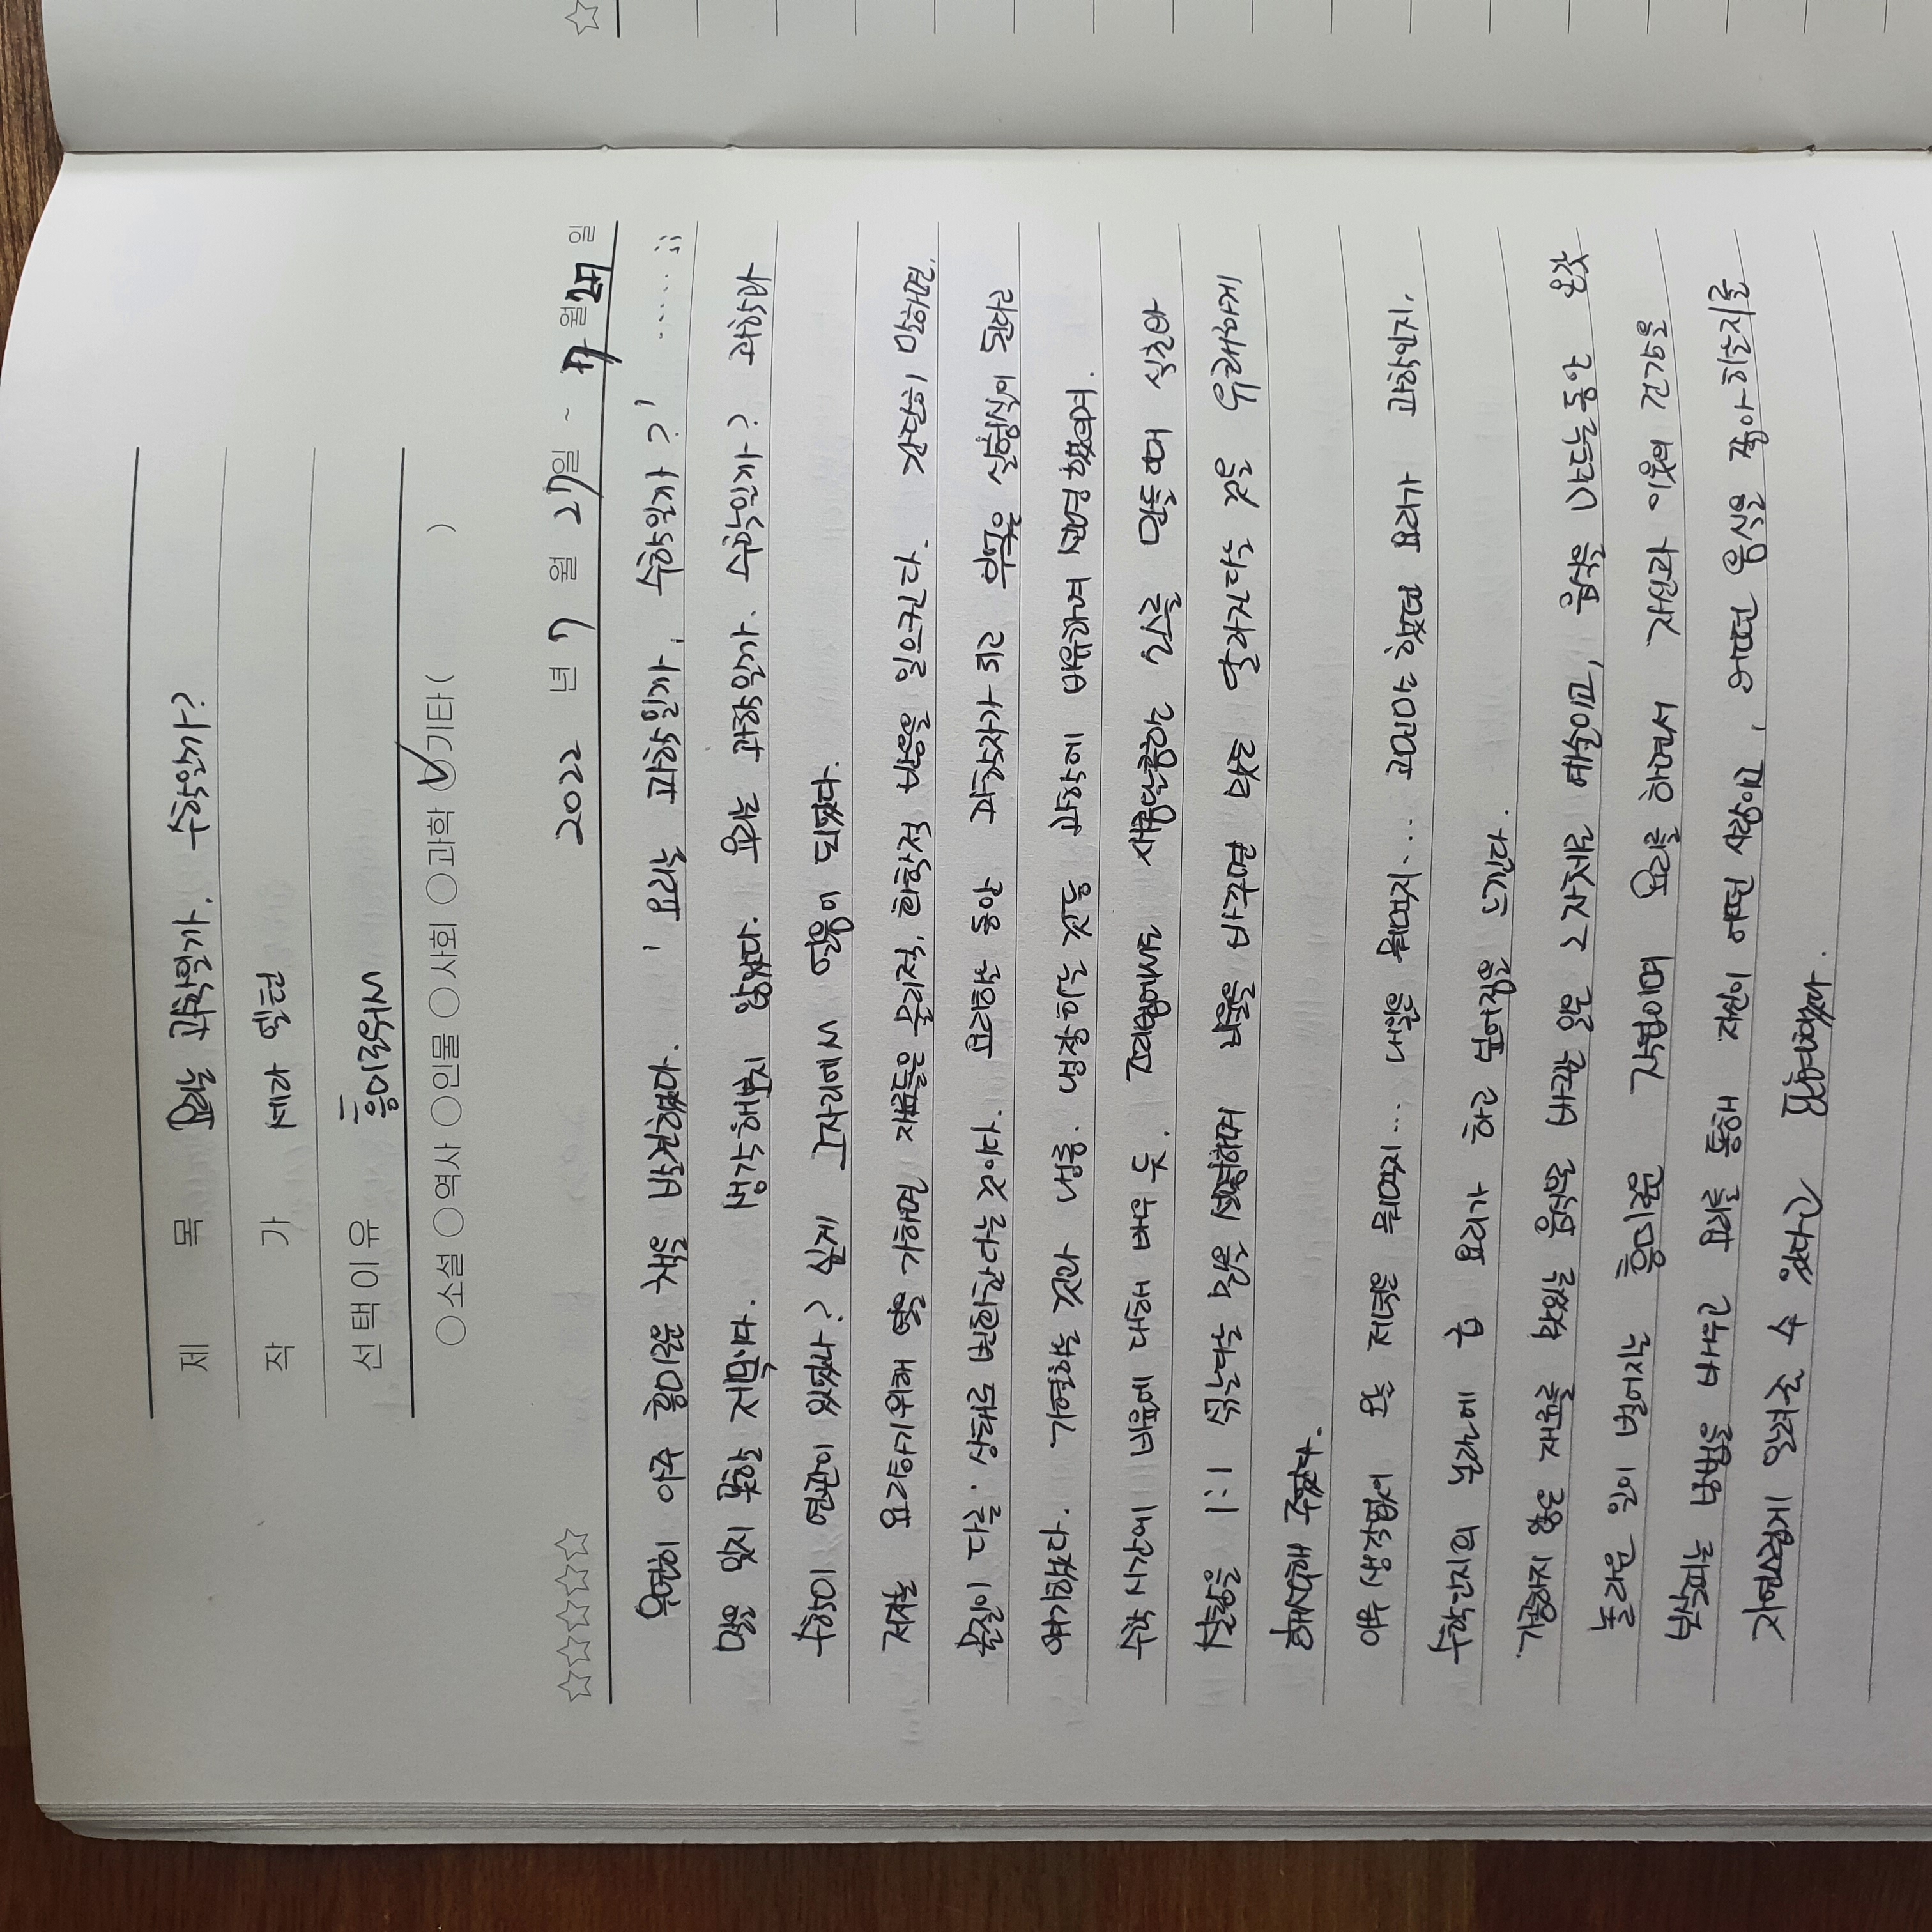 제 목 요리는 과학일까, 수학일까?
작 가 세라 엘턴
선택이유 흥미로워서
소설 역사 인물 사회 과학 기타 ( )
2022 년 7 월 27일 ~ 7 월 27 일
우연히 아주 흥미로운 책을 발견했다. '요리는 과학일까, 수학일까?' ..... ;;
말을 잊지 못할 제목이다. 생각해보지 않았다. 요리는 과학일까. 수학일까? 과학과
수학이 연관이 있었나? 싶게 그자리에서 얼음이 되었다.
저자는 요리하기위해 열을 가하면 재료들은 물리적, 화학적 반응을 일으킨다. 간단히 말하면,
물질이 다른 상태로 변화한다는 것이다. 요리하는 동안 과학자가 되고 부엌은 실험실이 된다고
얘기했다. 가열하는 것과 냉동. 냉장하는 것등 과학에 비유하여 설명했으며.
수학시간에 비율에 대해 배우듯. 조리법에서도 새콤달콤하는 소스를 만들때 식초와
설탕을 1:1 섞는다는 말을 설명하며 비율을 바꾸면 맛도 달라진다는 것을 유쾌하게
해석해 주었다.
아무 생각없이 오늘 저녁은 뭐먹지... 내일은 뭐먹지... 고민만 했던 요리가 과학인지,
수학인지의 논란에 급 요리가 하고 싶어짐을 느낀다.
가공하지 않은 재료를 맛있는 음식으로 바꾸는 일은 그 자체로 예술이고, 음식을 만드는동안 온갖
놀라운 일이 벌어지는 흥미로운 작업이며 요리를 하면서 자신과 이웃의 건강을
보살피는 방법을 배우고 요리를 통해 자신이 어떤 사람이고, 어떤 음식을 좋아하는지를
자연스럽게 알려줄 수 있다고 표현했다.